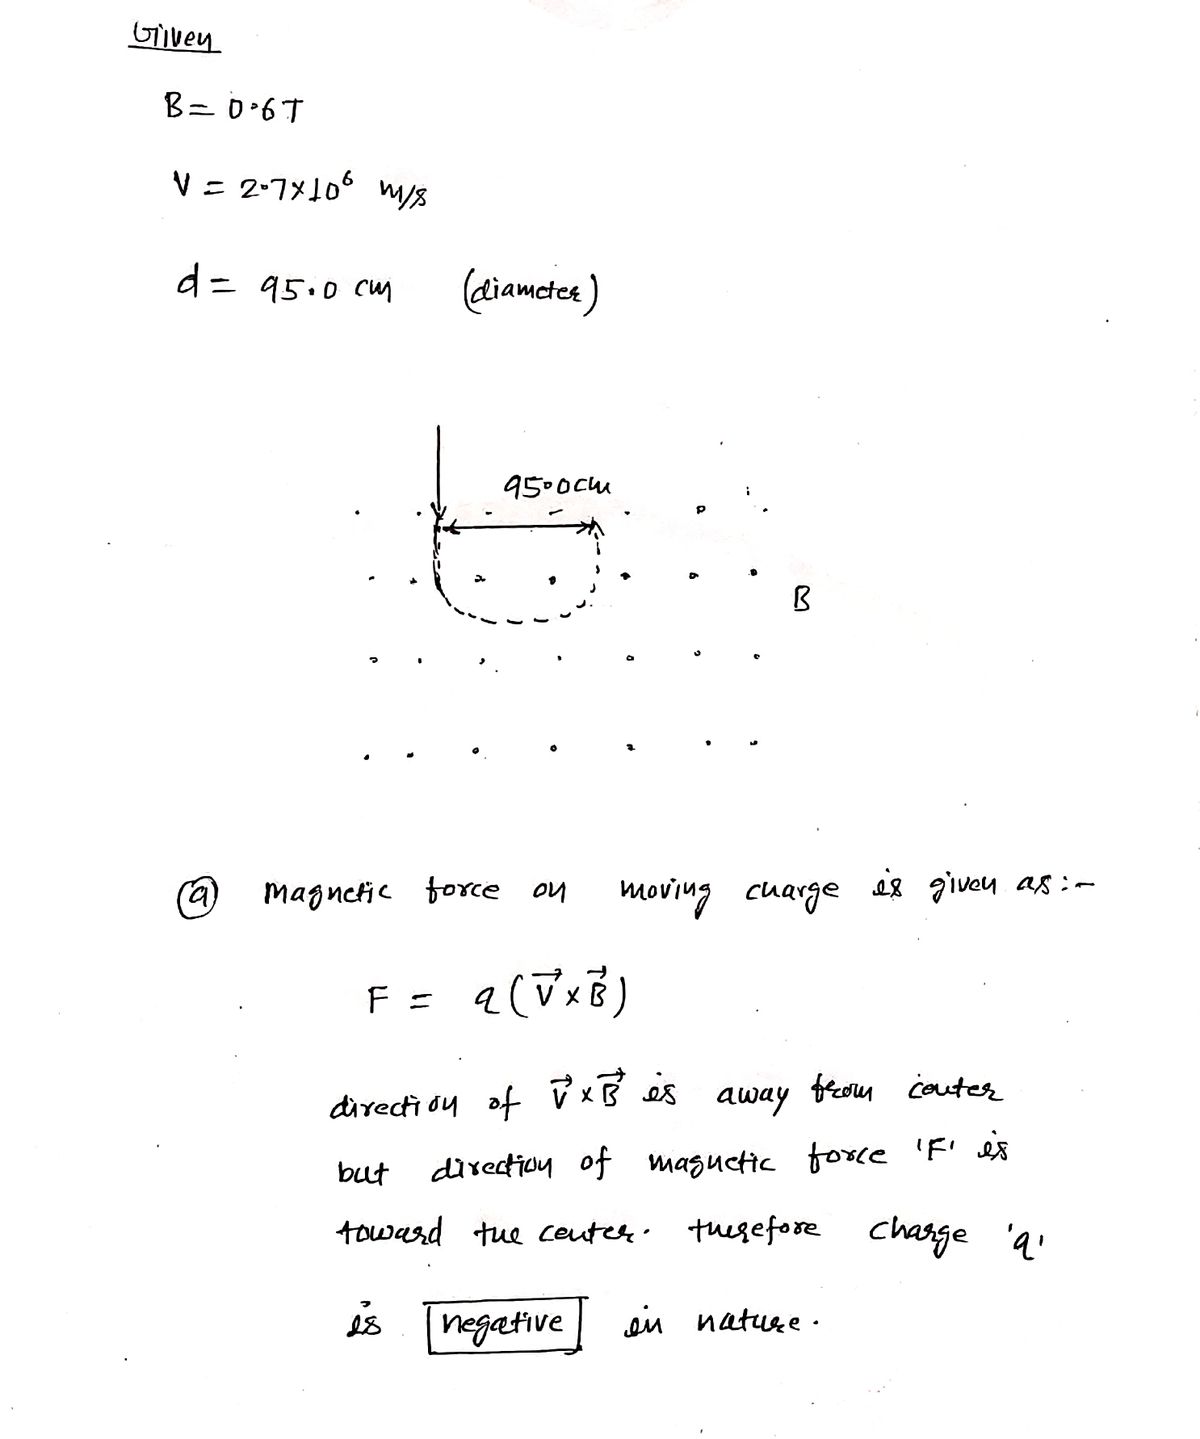 Given
B = 0.6T
V = 2.7×10⁶ m/s
d = 95.0 cm (diameter)
95.0cm
B
(a) magnetic force on moving charge is given as:-
F = q(V⃗×B⃗)
direction of V⃗×B⃗ is away from center
but direction of magnetic force 'F' is
toward the center. therefore charge 'q'
is negative in nature.